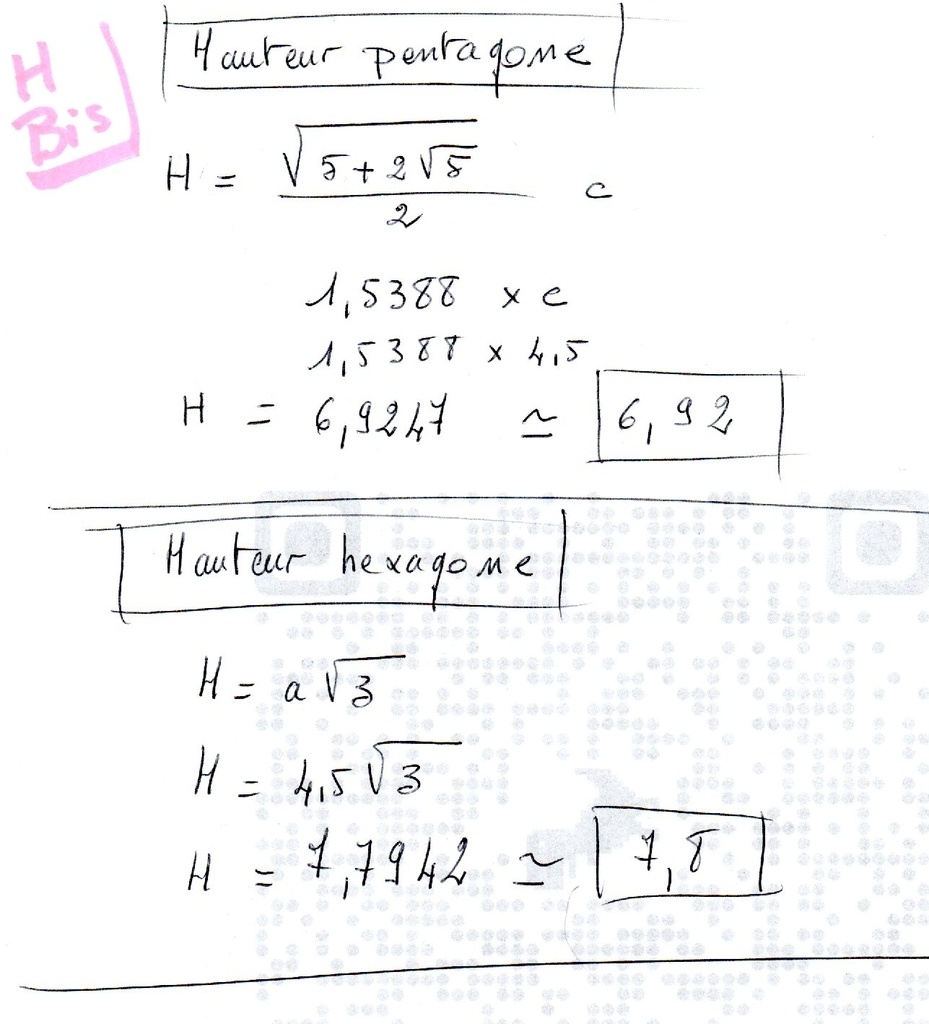 H
Bis
Hauteur pentagone
H = √(5 + 2√5) / 2 c
1,5388 x c
1,5388 x 4,5
H = 6,9247 ≃ 6,92
Hauteur hexagone
H = a √3
H = 4,5 √3
H = 7,7942 ≃ 7,8